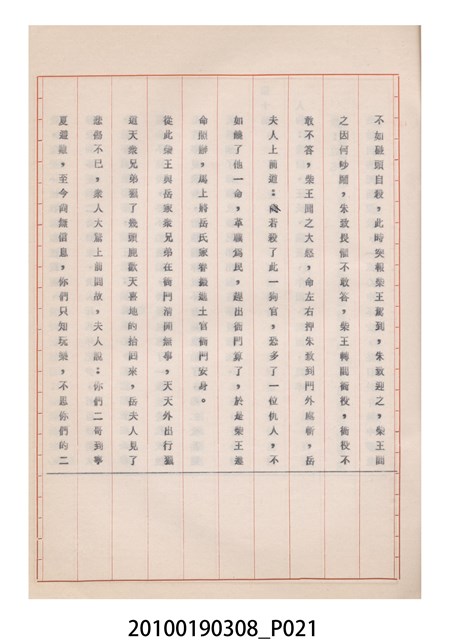 不如碰頭自殺，此時突報柴王駕到，朱致迎之，柴王問
之因何吵鬧，朱致畏懼不敢答，柴王轉問衙役，衙役不
敢不答，柴王聞之大怒，命左右押朱致到門外處斬，岳
夫人上前道：若殺了此一狗官，恐多了一位仇人，不
如饒了他一命，革職為民，趕出衙門算了，於是柴王遵
命照辦，馬上將岳氏家眷搬進土官衙門安身。
從此柴王與岳家眾兄弟在衙門清閒無事，天天外出行獵
這天眾兄弟獵了幾頭鹿歡天喜地的抬回來，岳夫人見了
悲傷不已，眾人大驚上前問故，夫人說：你們二哥到寧
夏避難，至今尚無信息，你們只知玩樂，不思你們的二
20100190308_P021